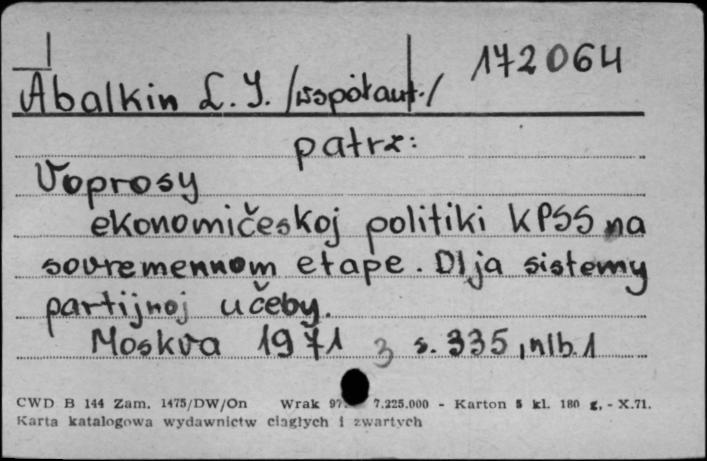 172064
Abalkin L. I. /współaut./
patrz:
Voprosy
ekonomičeskoj politiki KPSS na
sovremennom etape. Dlja sistemy
partijnoj učeby.
Moskva 1971 3 s. 335, nlb. 1
CWD B 144 Zam. 1475/DW/On Wrak 7.225.000 - Karton 5 kl. 180 g. - X.71.
Karta katalogowa wydawnictw ciągłych i zwartych